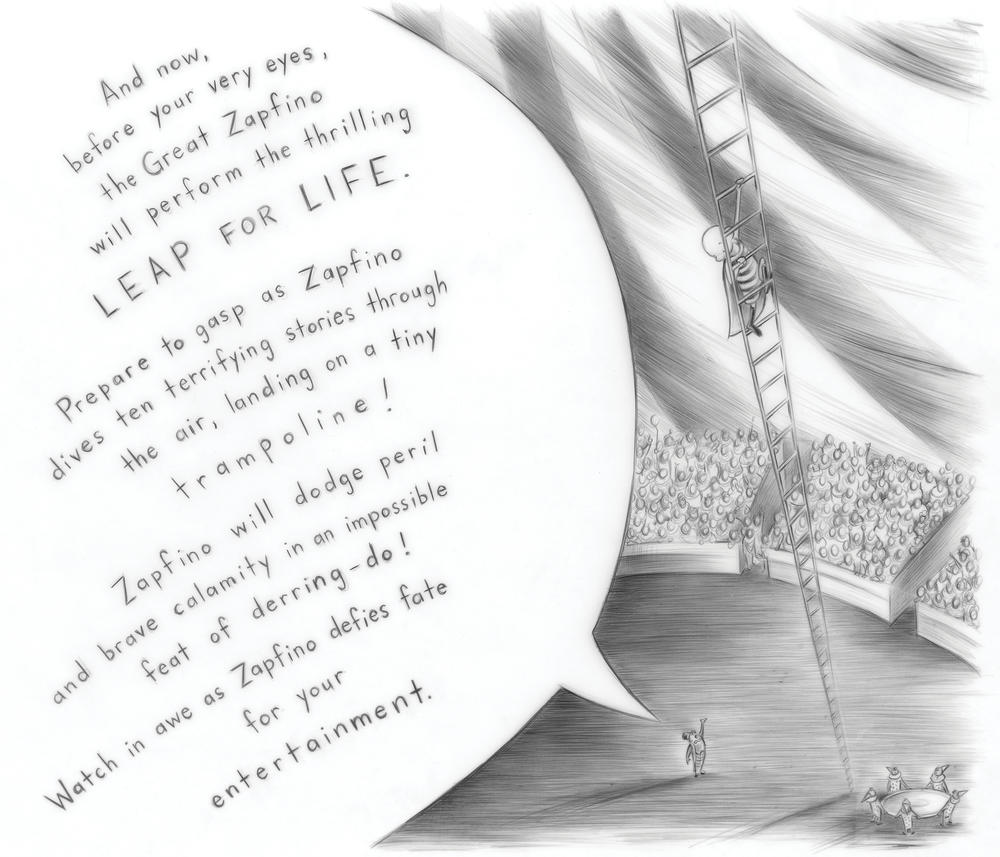 And now,
before your very eyes,
the Great Zapfino
will perform the thrilling
LEAP FOR LIFE.
Prepare to gasp as Zapfino
dives ten terrifying stories through
the air, landing on a tiny
trampoline!
Zapfino will dodge peril
and brave calamity in an impossible
feat of derring-do!
Watch in awe as Zapfino defies fate
for your
entertainment.